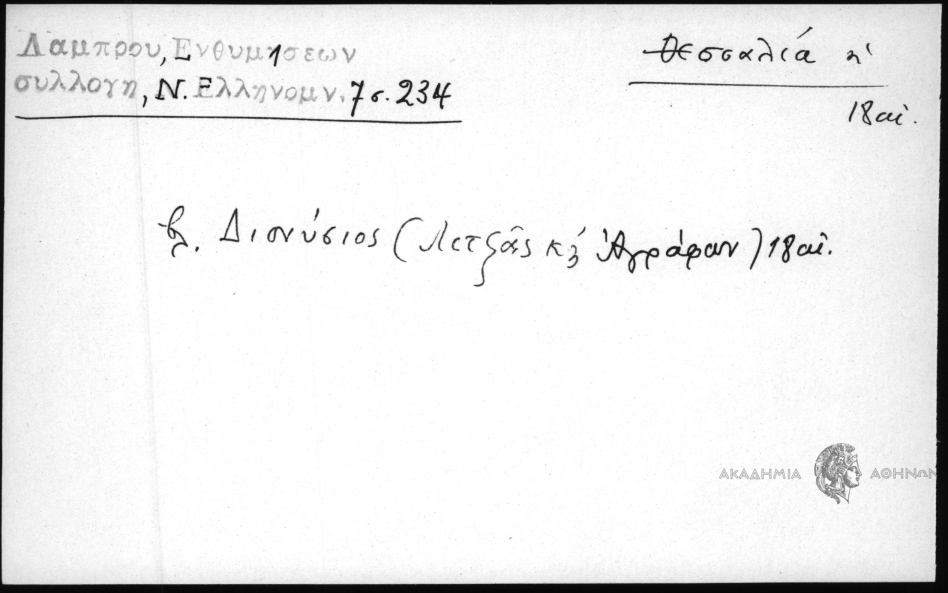 Λαμπρου, Ενθυμησεων
συλλογη, Ν. Ελληνομν. 7 σ. 234
Θεσσαλία
18 αἰ.
βλ. Διονύσιος (Λετζᾶς κ̀ Ἀγράφων) 18 αἰ.
ΑΚΑΔΗΜΙΑ ΑΘΗΝΩΝ